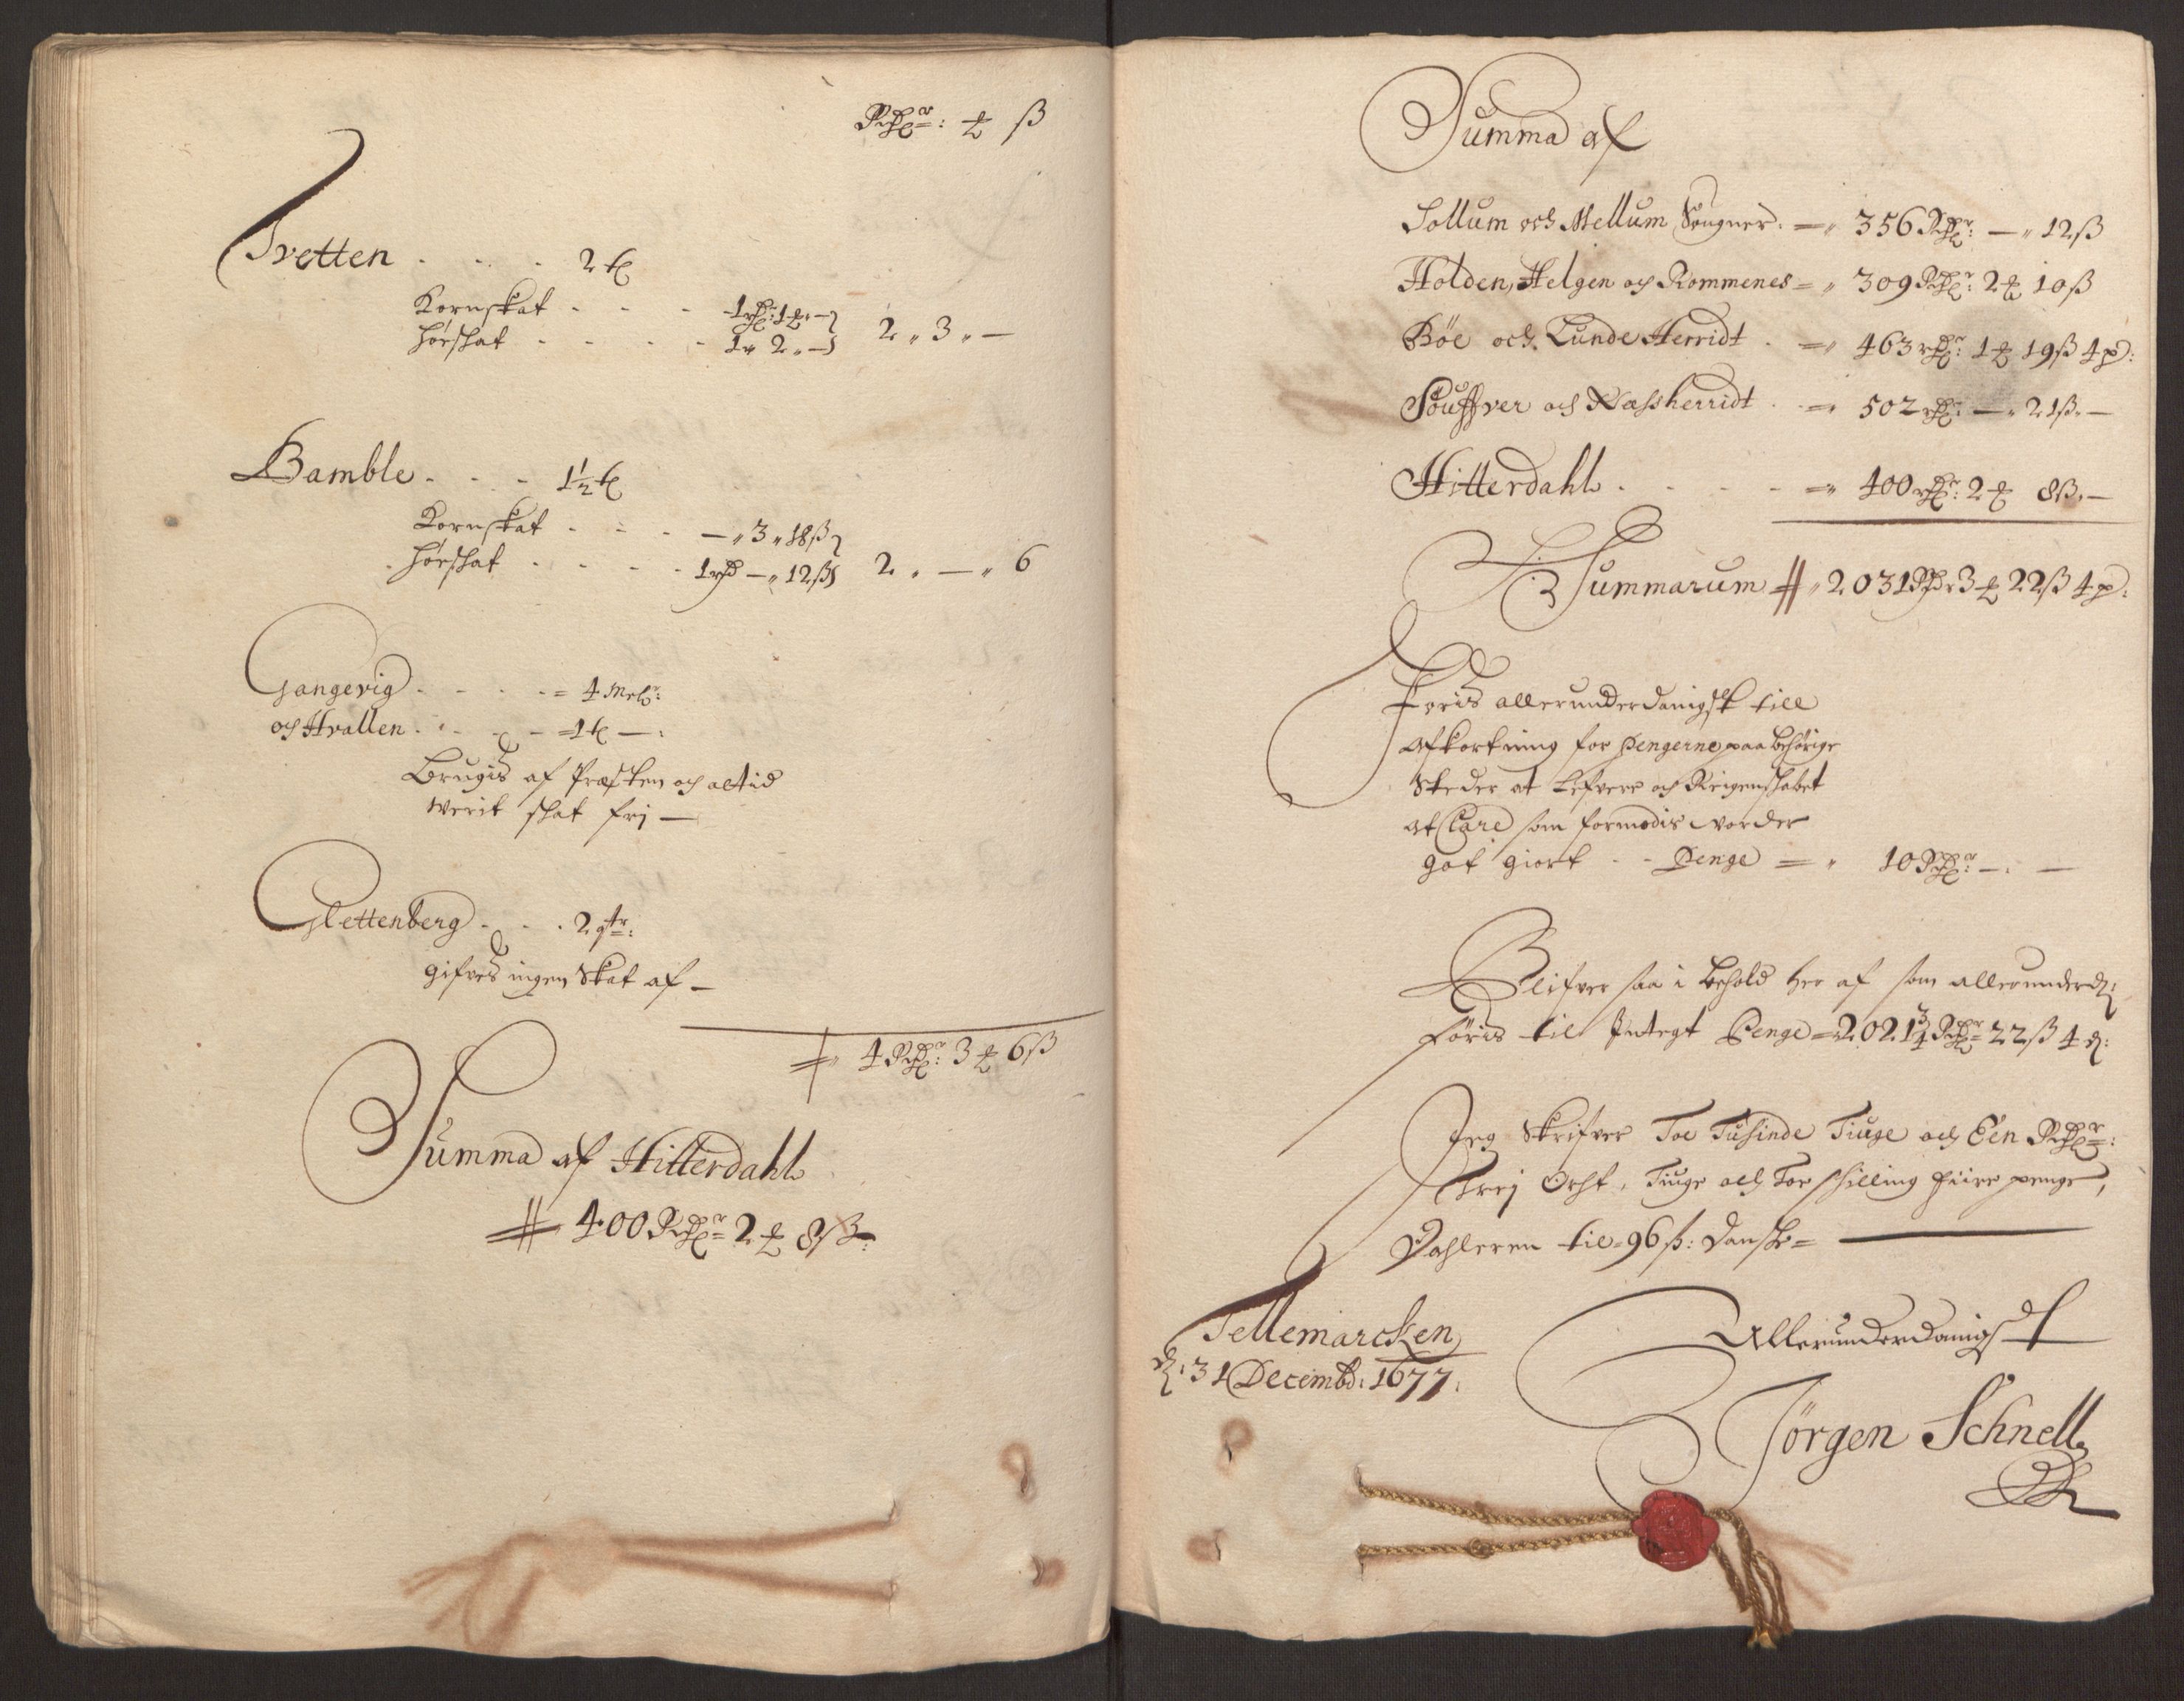 Rdr: ort ß
Tvetten . . . 2 tl
Kornskat . . . 1 rdr: 1 ort „ —
hørskat . . . . 1 „ 2 „ — 2 „ 3 „ —
Bamble . . . 1½ tl
Kornskat . . . — „ 3 „ 18 ß
hørskat . . . . 1 rd — „ 12 ß 2 „ — „ 6
Gangevig . . . = 4 Mel:
och Hvallen . . . = 1 tl — :
Brugis af Præsten och altid
werit skat frj —
Glettenberg . . . 2 qtr:
gifves ingen Skat af —
4 Rdr: 3 ort 6 ß
Summa af Hitterdahl
400 Rdr 2 ort 8 ß —
Summa af
Sollum och Mellum Sougner. — „ 356 Rdr: — „ 12 ß
Holden, Helgen og Rommenes = „ 309 Rdr: 2 ort 10 ß
Böe och Lunde Herridt . = „ 463 rdr: 1 ort 19 ß 4 p:
Souffver och Nassherridt . = 502 rdr: — „ 21 ß. —
Hitterdahl . . . . = „ 400 rdr: 2 ort 8 ß. —
Summarum „ 2031 Rdr 3 ort 22 ß 4 p:
Föris allerunderdanigst till
Afkortning for Pengerne paa behörige
Steder at lefvere och Reigenskabet
at Clare som formodis vorder
got giort - - Penge = „ 10 Rdr — : —
Blifver saa i behold her af som allerunderd:
föris til Indtegt Penge = 2021¾ Rdr 22 ß 4 d:
Jeg Skrifver Toe Tusinde Tiuge och Een Rdr:
Trej Ort, Tiuge och Toe skilling fiire penge,
Dahleren til 96 ß: danske =
Tellemarcken
d: 31 Decembr: 1677.
Allerunderdanigst
Jörgen Schnell